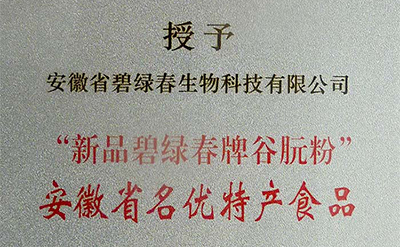 授予
安徽省碧绿春生物科技有限公司
“新品碧绿春牌谷朊粉”
安徽省名优特产食品